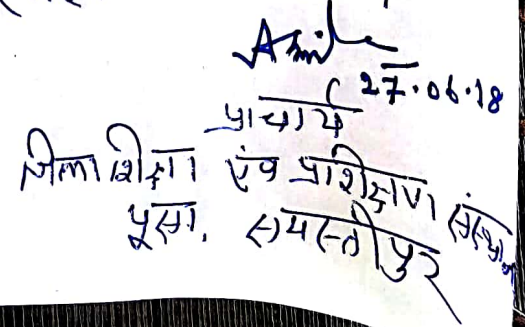 27.06.18
प्राचार्य
जिला शिक्षा एंव प्रशिक्षण संस्थान
पूसा, समस्तीपुर